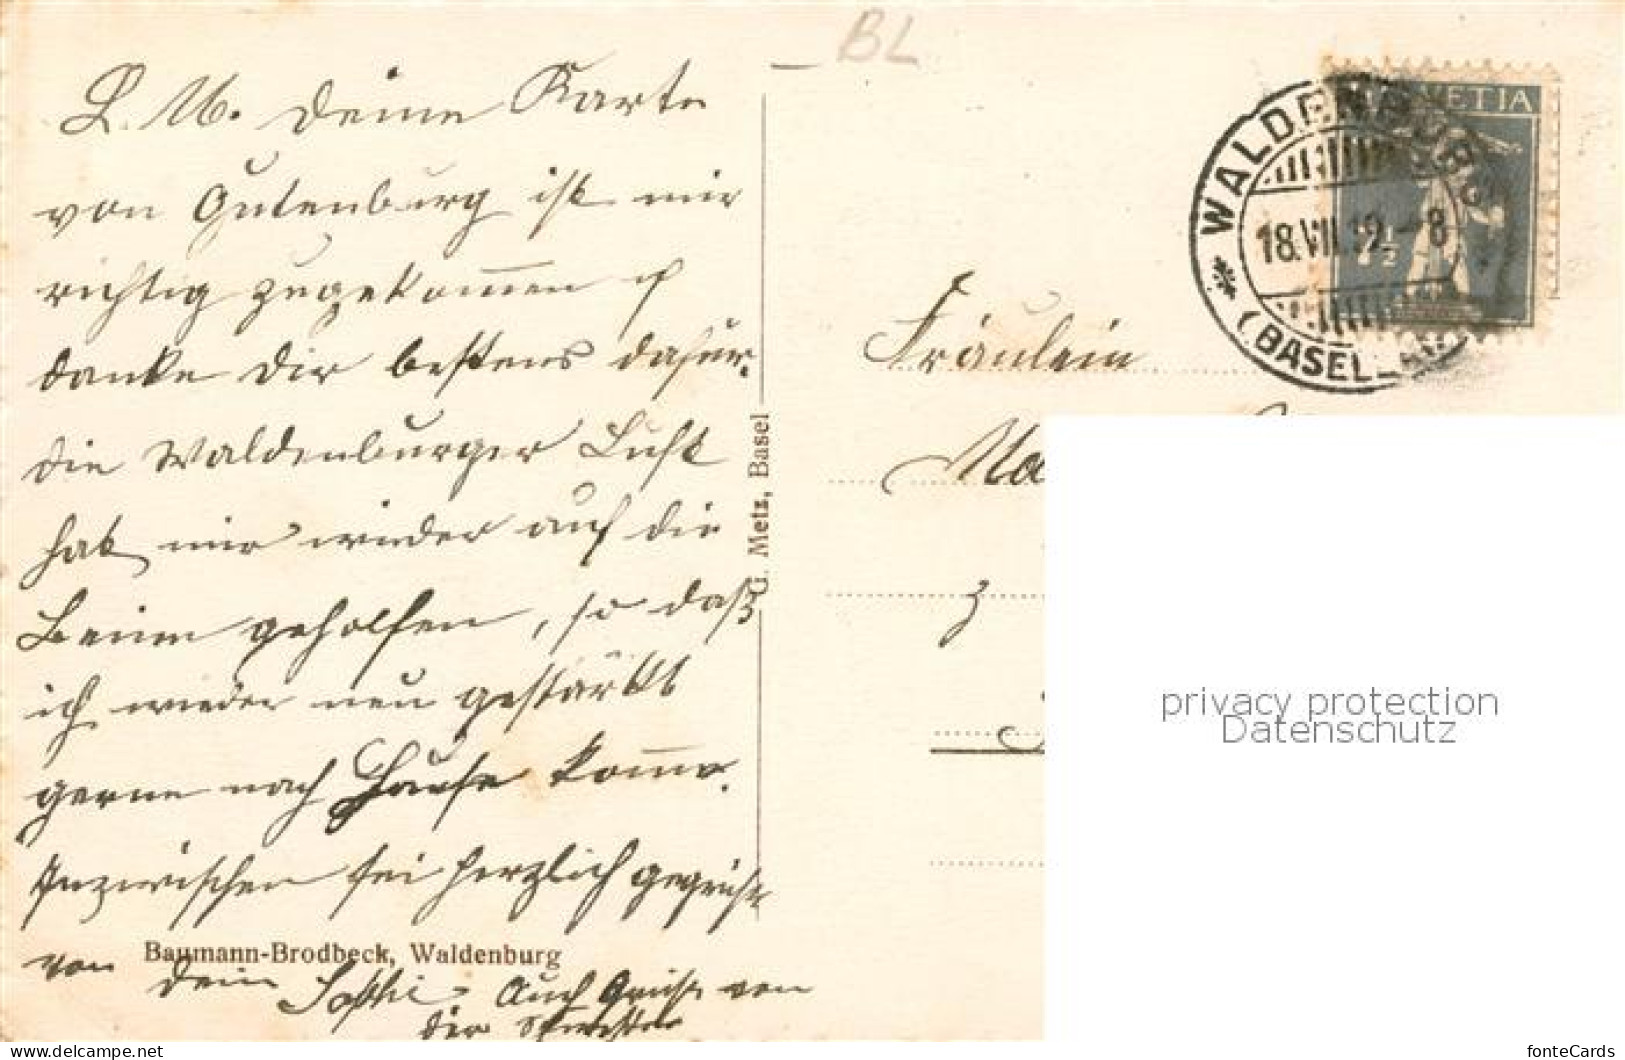 BL
L. M. Deine Karte
von Gutenburg ist mir
richtig zugekommen &
danke Dir bestens dafür.
Die Waldenburger Luft
hat mir wieder auf die
Beine geholfen, so daß
ich wieder neu gestärkt
gerne nach Hause komme.
Inzwischen sei herzlich gegrüßt
von Dein Sophie. Auch Grüße von
der Schwester
Baumann-Brodbeck, Waldenburg
G. Metz, Basel
HELVETIA
7½
WALDENBURG
18.VII.19.-8
(BASELLAND)
Fräulein
Ma
z
privacy protection
Datenschutz
fonteCards
delcampe.net